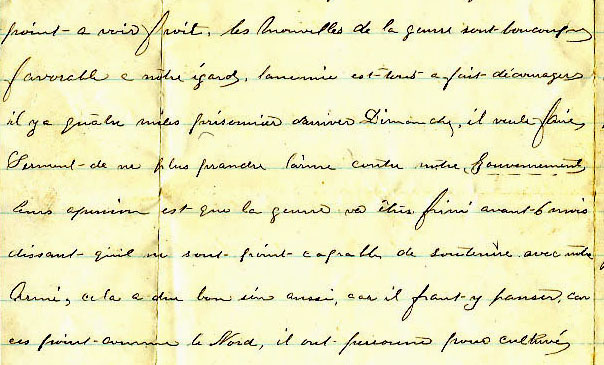 point a voir froit, les Nouvelles de la gerre sont boucoup
favorable a notre égard, lanemie est tout a fait décourager
il y a quatre miles prisonnier darriver Dimanche, il veule faire
Serment de ne plus prandre larme contre notre Gouvernement
leurs opinion est que la gerre va être finié avant 6 mois
dissant quil ne sont point capable de soutenire avec notre
Armé, cela a du bon sin aussi, car il faut y panser, car
ces point comme le Nord, il ont personne pour cultivé